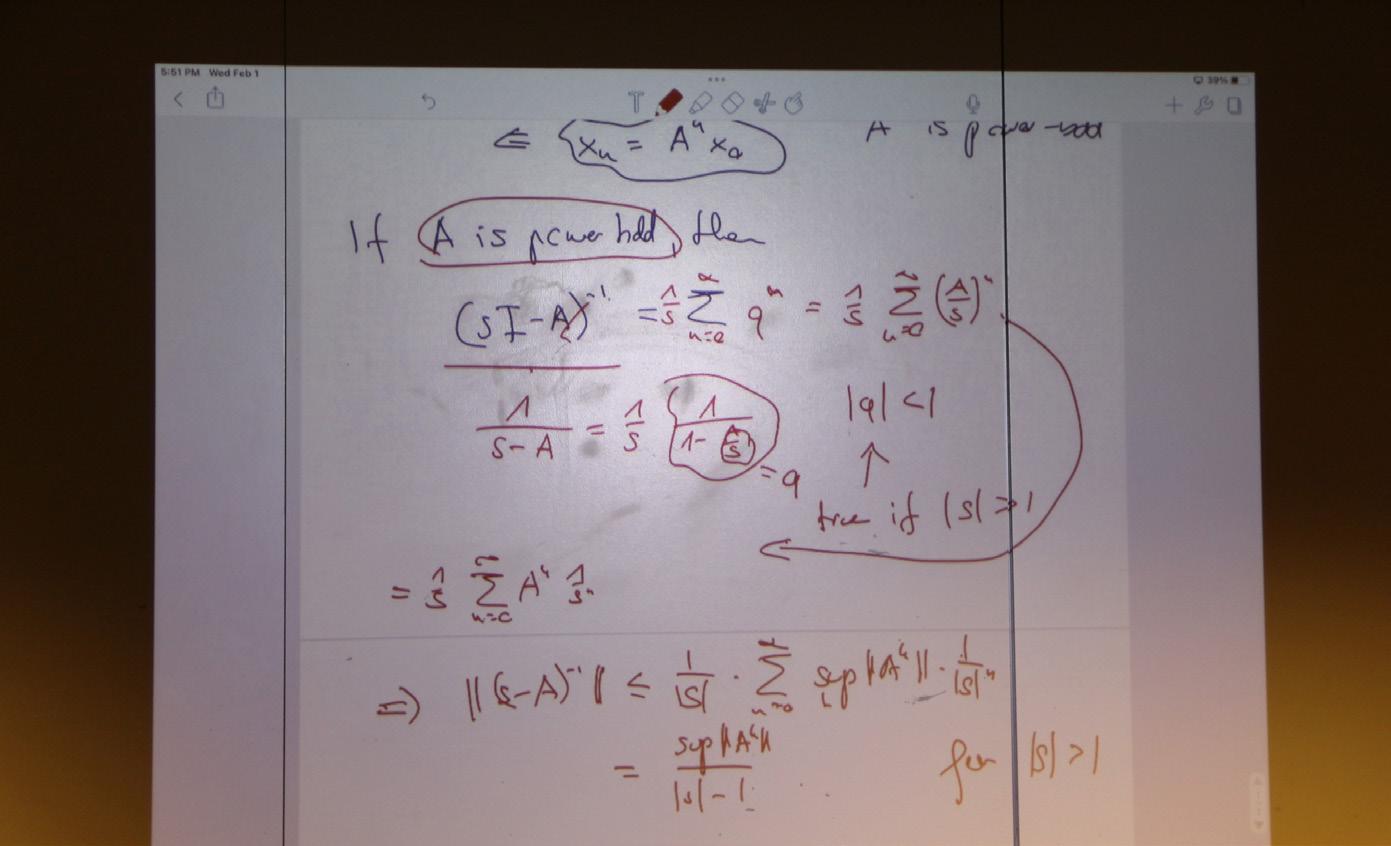 5:51 PM Wed Feb 1 39%
⇐ xₙ = Aⁿ x₀ A is power-bdd
If A is power bdd, then
(sI-A)⁻¹ = 1/s ∑_{n=0}^∞ qⁿ = 1/s ∑_{n=0}^∞ (A/s)ⁿ
1/(s-A) = 1/s 1/(1-(A/s)) = q |q| < 1
true if |s| > 1
= 1/s ∑_{n=0}^∞ Aⁿ 1/sⁿ
⇒ ||(s-A)⁻¹|| ≤ 1/|s| · ∑_{n=0}^∞ sup||Aⁿ|| · 1/|s|ⁿ
= sup||Aⁿ||/(|s|-1) for |s| > 1